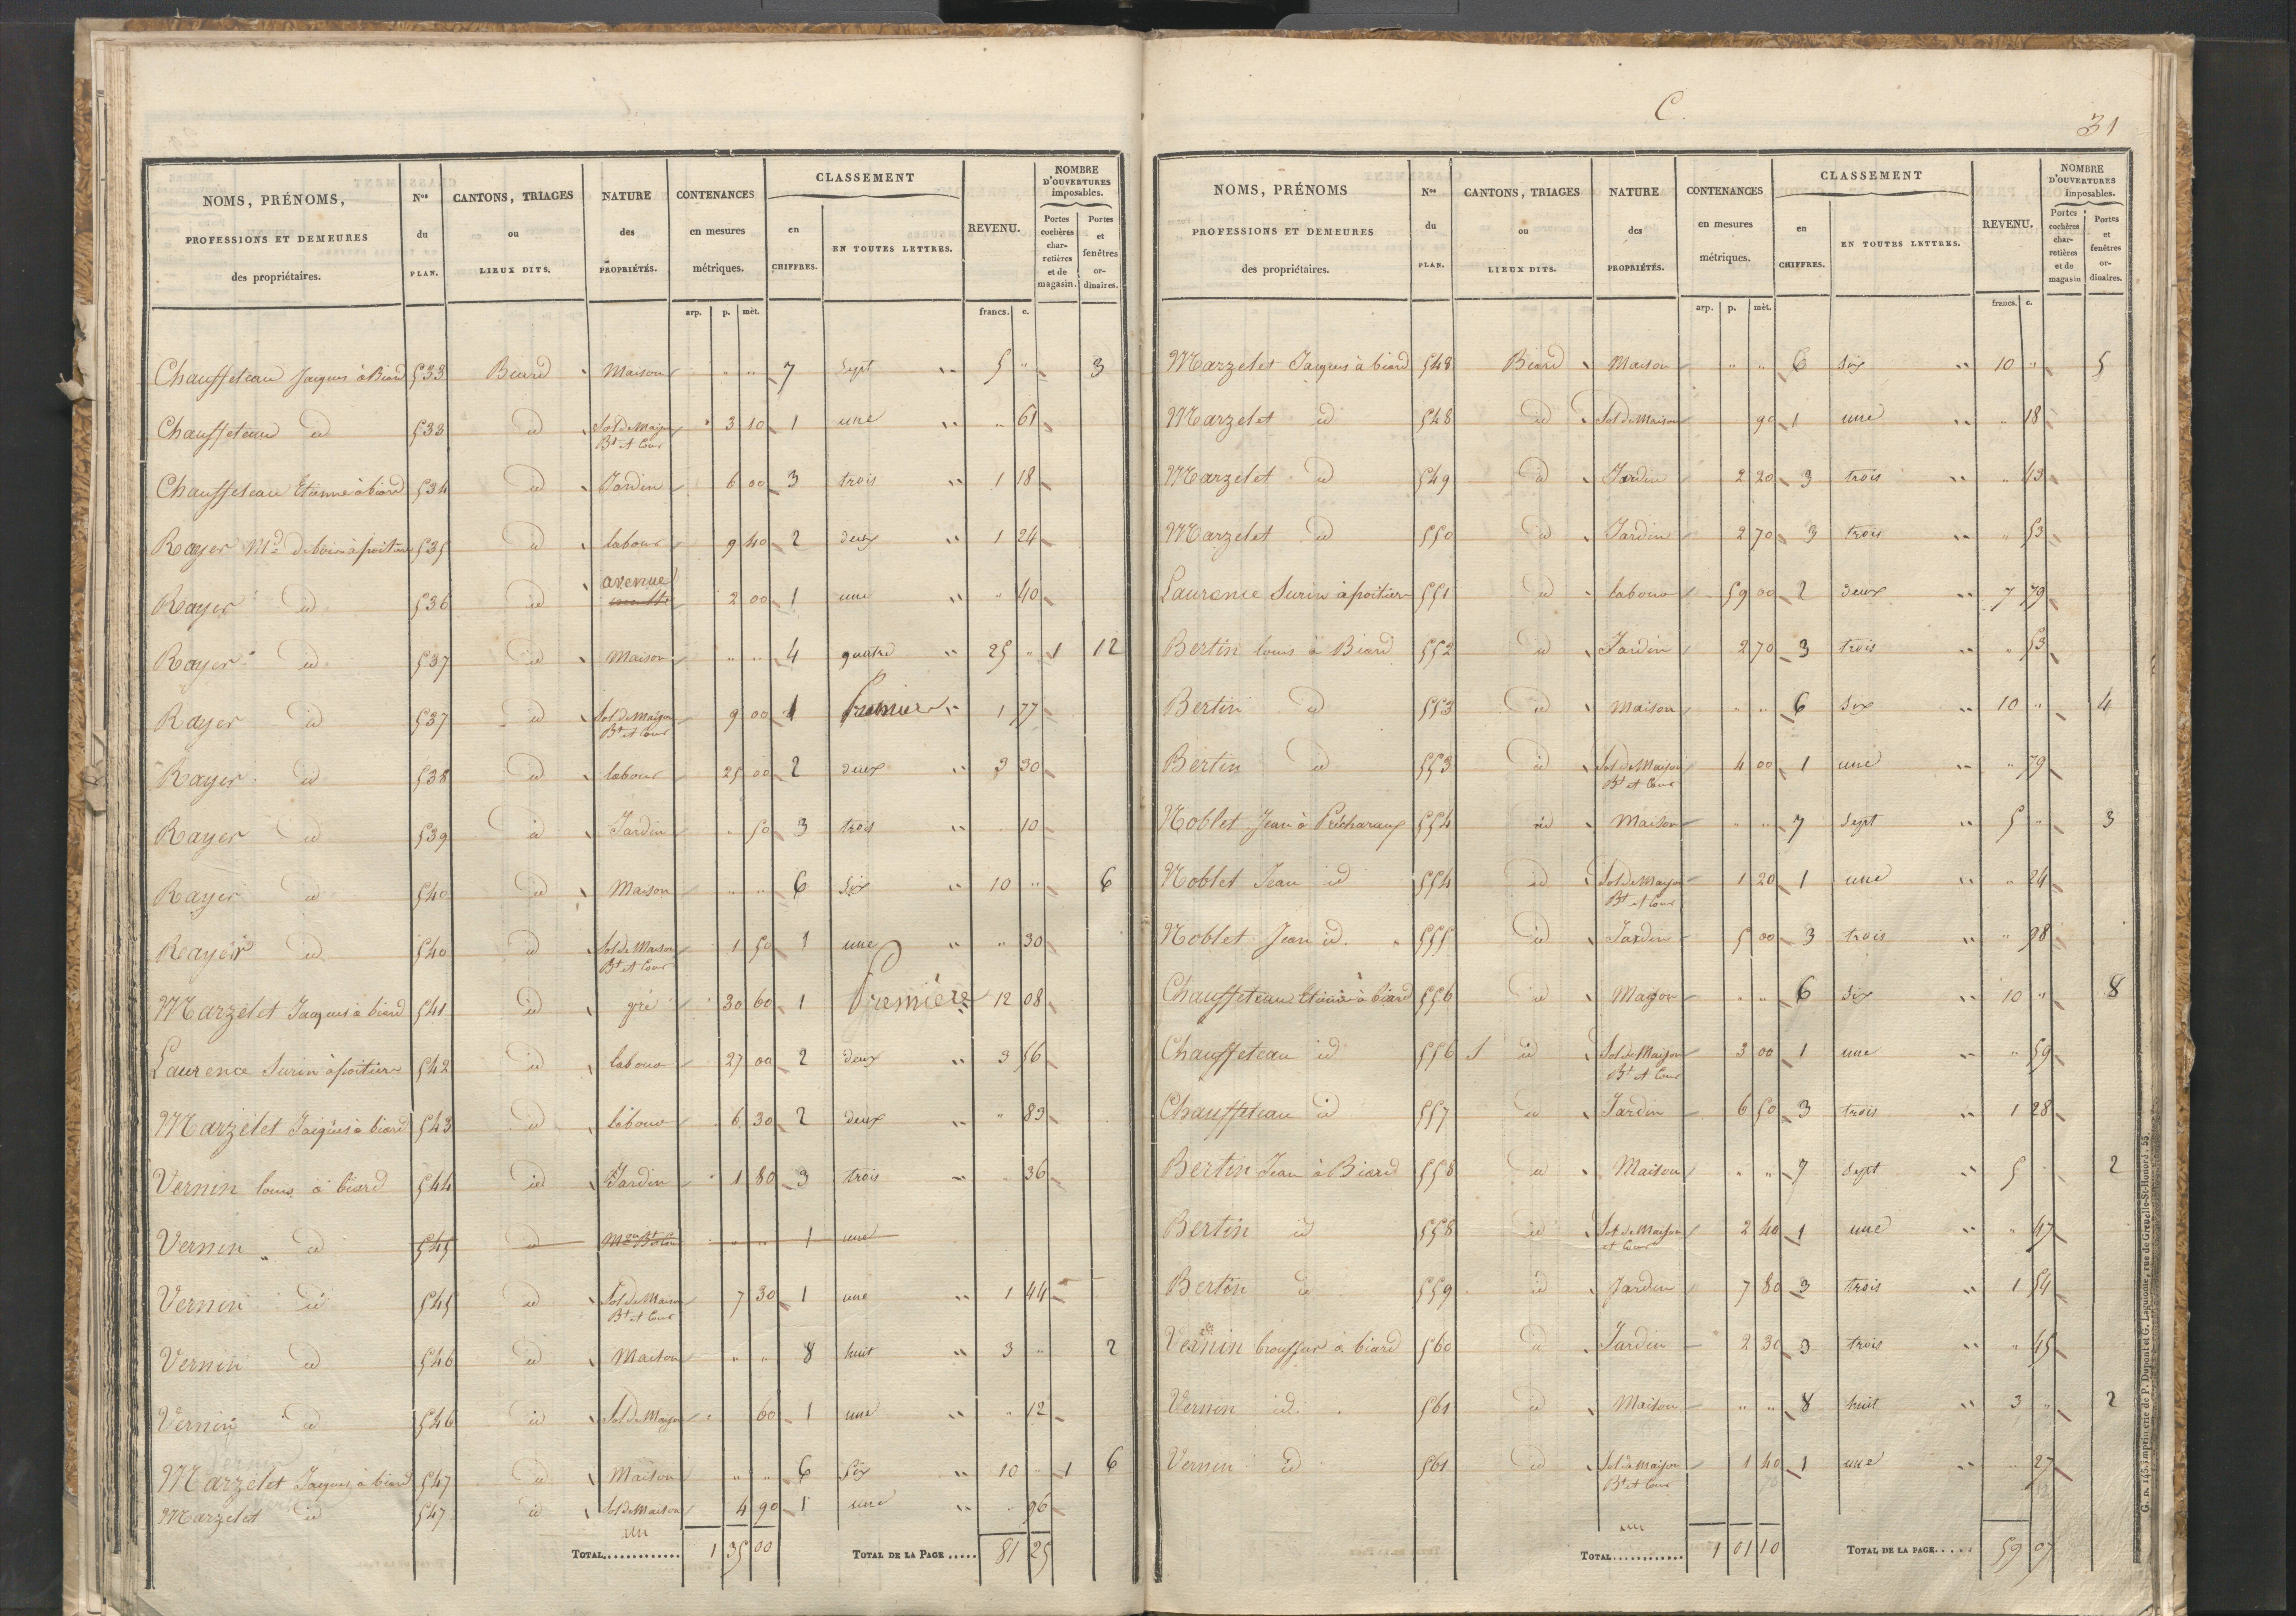 NOMS, PRÉNOMS, PROFESSIONS ET DEMEURES des propriétaires. Nos du PLAN. CANTONS, TRIAGES ou LIEUX DITS. NATURE des PROPRIÉTÉS. CONTENANCES en mesures métriques. CLASSEMENT en CHIFFRES. EN TOUTES LETTRES. REVENU. NOMBRE D'OUVERTURES imposables. Portes cochères charretières et de magasin. Portes et fenêtres ordinaires.
arp. p. mèt. francs. c.
Chauffeteau Jacques à Biard 533 Biard Maison " " 7 Sept " 5 " 3
Chauffeteau id 533 id Sol de Maison Bt et Cour 3 10 1 une " " 61
Chauffeteau Etienne à biard 534 id Jardin 6 00 3 trois " 1 18
Rayer Md de bois à poitiers 535 id labour 9 40 2 deux " 1 24
Rayer id 536 id avenue 2 00 1 une " " 40
Rayer id 537 id Maison " " 4 quatre " 25 " 1 12
Rayer id 537 id Sol de Maison Bt et Cour 9 00 1 Premier " 1 77
Rayer id 538 id labour 25 00 2 deux " 3 30
Rayer id 539 id Jardin " 50 3 trois " " 10
Rayer id 540 id Maison " " 6 Six " 10 " 6
Rayer id 540 id Sol de Maison Bt et Cour 1 50 1 une " " 30
Marzelet Jacques à biard 541 id pré 30 60 1 Première 12 08
Laurence Surin à poitiers 542 id labour 27 00 2 deux " 3 56
Marzelet Jacques à biard 543 id labour 6 30 2 deux " " 83
Vernin louis à biard 544 id Jardin 1 80 3 trois " " 36
Vernin id 545 id Mon Bt et Cour " " 1 une
Vernin id 545 id Sol de Maison Bt et Cour 7 30 1 une " 1 44
Vernin id 546 id Maison " " 8 huit " 3 " 2
Vernin id 546 id Sol de Maison 60 1 une " " 12
Marzelet Jacques à biard 547 id Maison " " 6 Six " 10 " 1 6
Marzelet id 547 id Sol de Maison 4 90 1 une " " 96
TOTAL............. 1 35 00 TOTAL DE LA PAGE..... 81 25
C.
31
NOMS, PRÉNOMS PROFESSIONS ET DEMEURES des propriétaires. Nos du PLAN. CANTONS, TRIAGES ou LIEUX DITS. NATURE des PROPRIÉTÉS. CONTENANCES en mesures métriques. CLASSEMENT en CHIFFRES. EN TOUTES LETTRES. REVENU. NOMBRE D'OUVERTURES imposables. Portes cochères charretières et de magasin Portes et fenêtres ordinaires.
arp. p. mèt. francs. c.
Marzelet Jacques à biard 548 Biard Maison " " 6 Six " 10 " 5
Marzelet id 548 id Sol de Maison 90 1 une " " 18
Marzelet id 549 id Jardin 2 20 3 trois " " 43
Marzelet id 550 id Jardin 2 70 3 trois " " 53
Laurence Surin à poitiers 551 id labour 59 00 2 deux " 7 79
Bertin louis à Biard 552 id Jardin 2 70 3 trois " " 53
Bertin id 553 id Maison " " 6 Six " 10 " 4
Bertin id 553 id Sol de Maison Bt et Cour 4 00 1 une " " 79
Noblet Jean à 554 id Maison " " 7 Sept " 5 " 3
Noblet Jean id 554 id Sol de Maison Bt et Cour 1 20 1 une " " 24
Noblet Jean id. 555 id Jardin 5 00 3 trois " " 98
Chauffeteau Etienne à biard 556 id Maison " " 6 Six " 10 " 8
Chauffeteau id 556 id Sol de Maison Bt et Cour 3 00 1 une " " 59
Chauffeteau id 557 id Jardin 6 50 3 trois " 1 28
Bertin Jean à Biard 558 id Maison " " 7 Sept " 5 2
Bertin id 558 id Sol de Maison et Cour 2 40 1 une " " 47
Bertin id 559 id Jardin 7 80 3 trois " 1 54
Vernin à biard 560 id Jardin 2 30 3 trois " " 45
Vernin id. 561 id Maison " " 8 huit " 3 " 2
Vernin id 561 id Sol de Maison Bt et Cour 1 40 1 une " " 27
TOTAL............ 1 01 10 TOTAL DE LA PAGE..... 59 07
G. n. 143. Imprimerie de P. Dupont et G. Laguionie, rue de Grenelle-St-Honoré, 55.